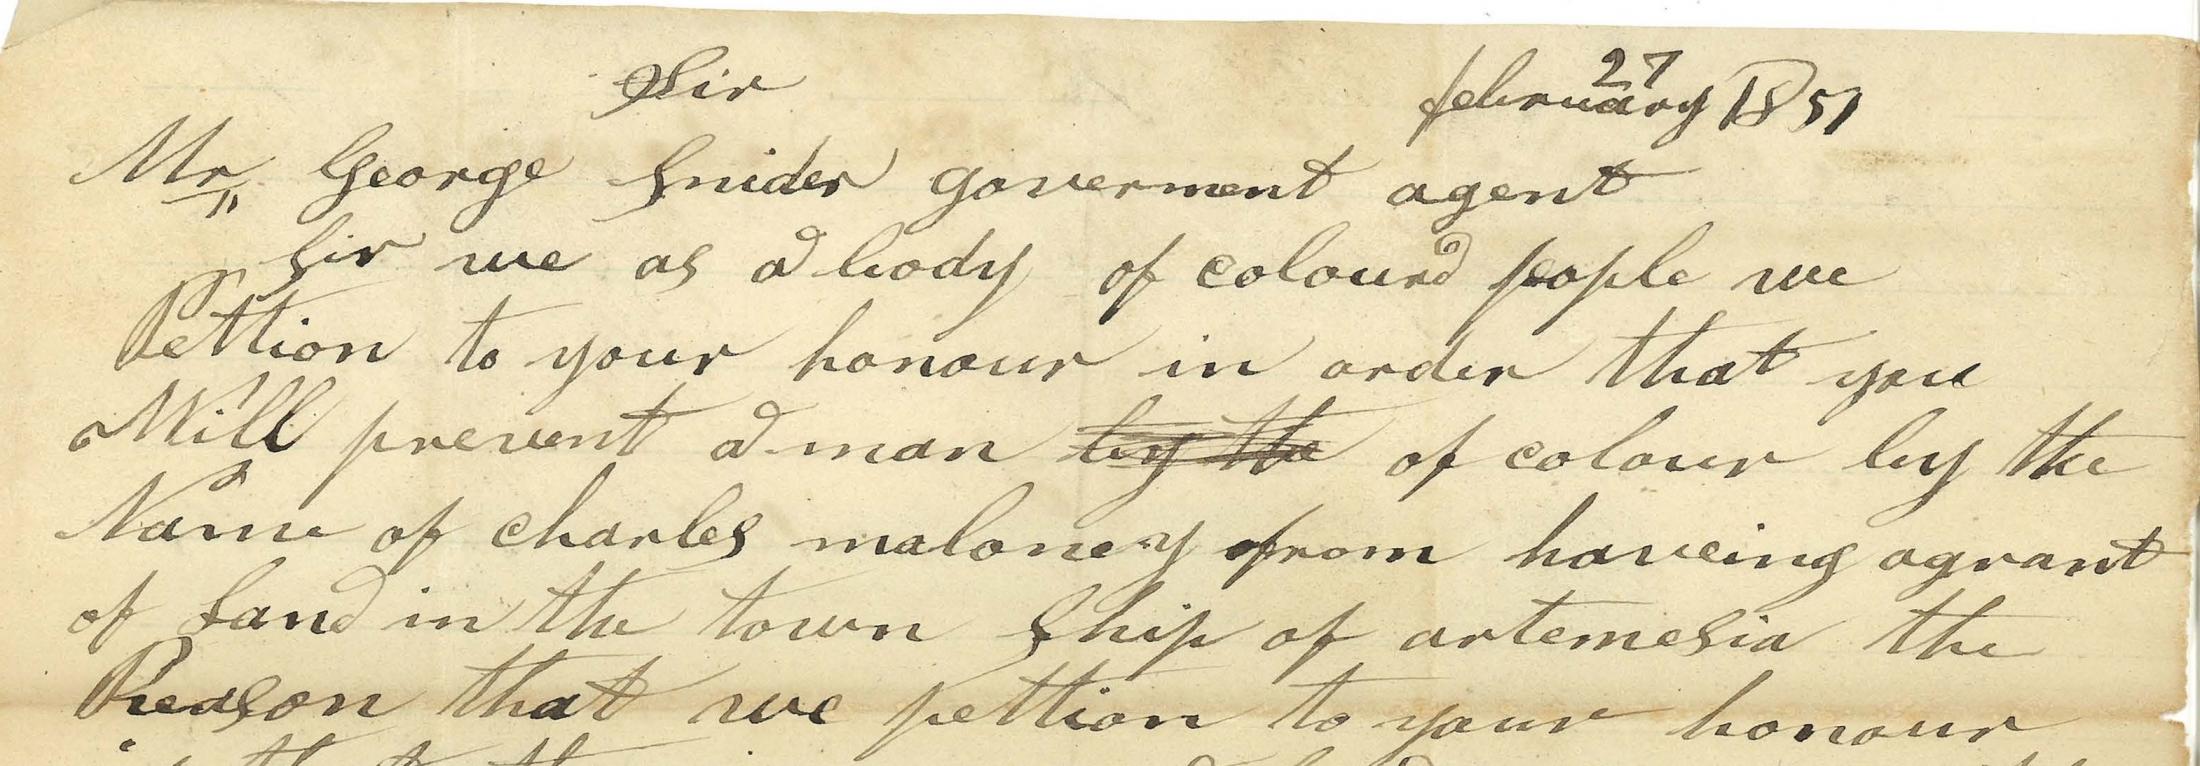 Sir february 27 1851
Mr, George Snider goverment agent
Sir we as a body of colourd people we
Pettion to your honour in order that you
Will prevent a man by the of colour by the
Name of charles maloney from haveing agrant
of Land in the town Ship of artemesia the
Reason that we pettion to your honour